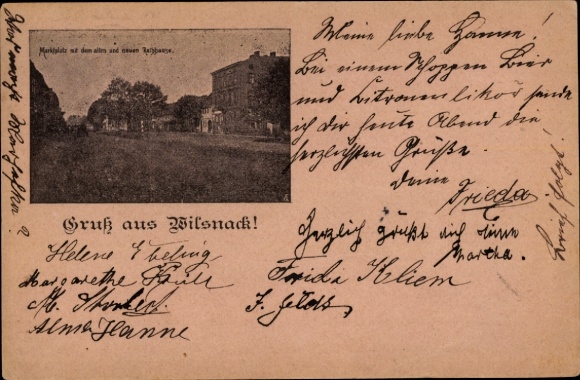 Marktplatz mit dem alten und neuen Rathhause.
Gruß aus Wilsnack!
Meine liebe Hanne!
Bei einem Schoppen Bier
und Citronenlikör sende
ich dir heute Abend die
herzlichsten Grüße.
deine
Frieda
Brief folgt!
Herzlich grüßt dich deine
Martha.
Helene Ebeling
Margarethe
Frida Kliem
M.
F.
Alma Hanne